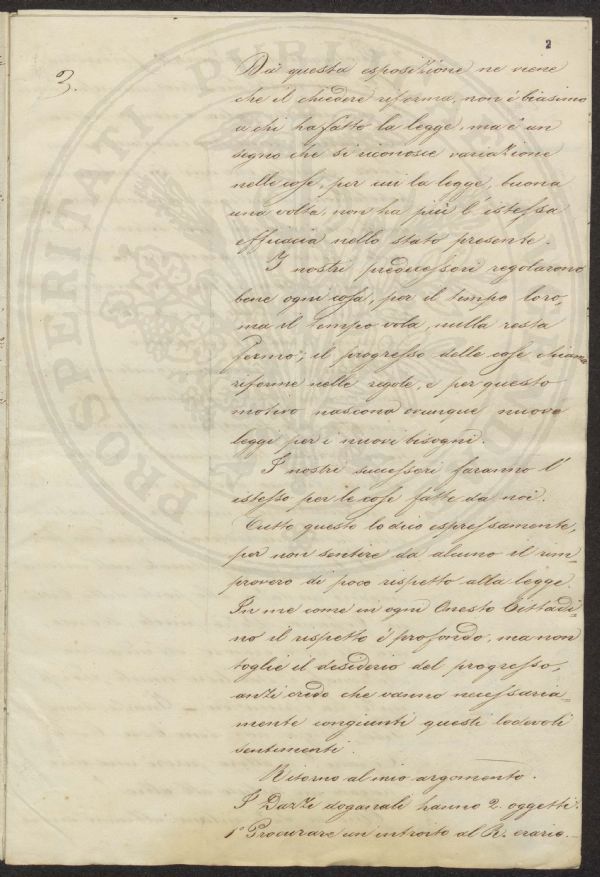 2
3.
Da questa esposizione ne viene
che il chiedere riforma, non è biasimo
a chi ha fatto la legge, ma è un
segno che si riconosce variazione
nelle cose, per cui la legge, buona
una volta, non ha più l'istessa
efficacia nello stato presente.
I nostri predecessori regolarono
bene ogni cosa, per il tempo loro,
ma il tempo vola, nulla resta
fermo, il progresso delle cose chiama
riforme nelle regole, e per questo
motivo nascono ovunque nuove
leggi per i nuovi bisogni.
I nostri successori faranno l'
istesso per le cose fatte da noi.
Tutto questo lo dico espressamente,
per non sentire da alcuno il rim=
provero di poco rispetto alla legge.
In me come in ogni Onesto Cittadi=
no il rispetto è profondo, ma non
toglie il desiderio del progresso,
anzi credo che vanno necessaria=
mente congiunti questi lodevoli
sentimenti.
Ritorno al mio argomento.
I Dazzi doganali hanno 2. oggetti.
1° Procurare un introito al R. erario.
PROSPERITATI PUBLICAE